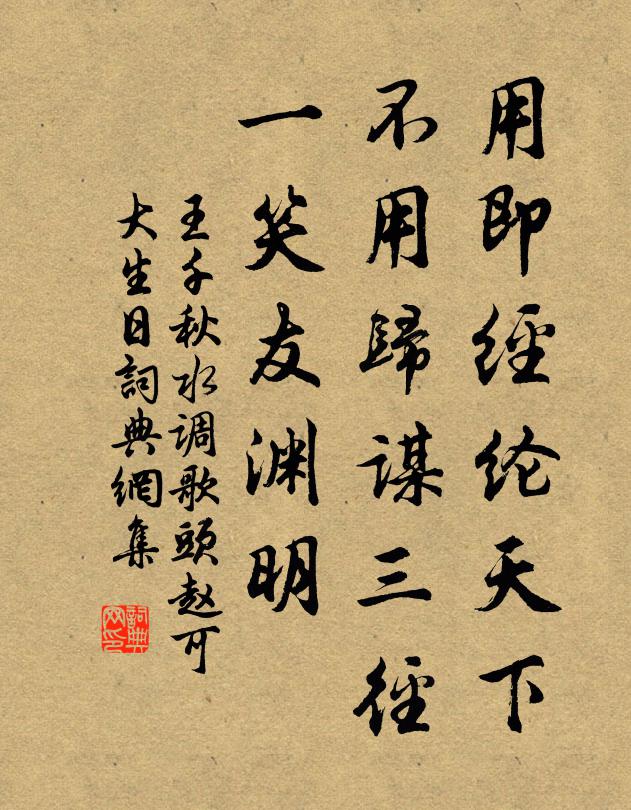 用即經纶天下
不用歸谋三徑
一笑友渊明
王千秋水调歌頭赵可
大生日詞典網集
詞典
网印